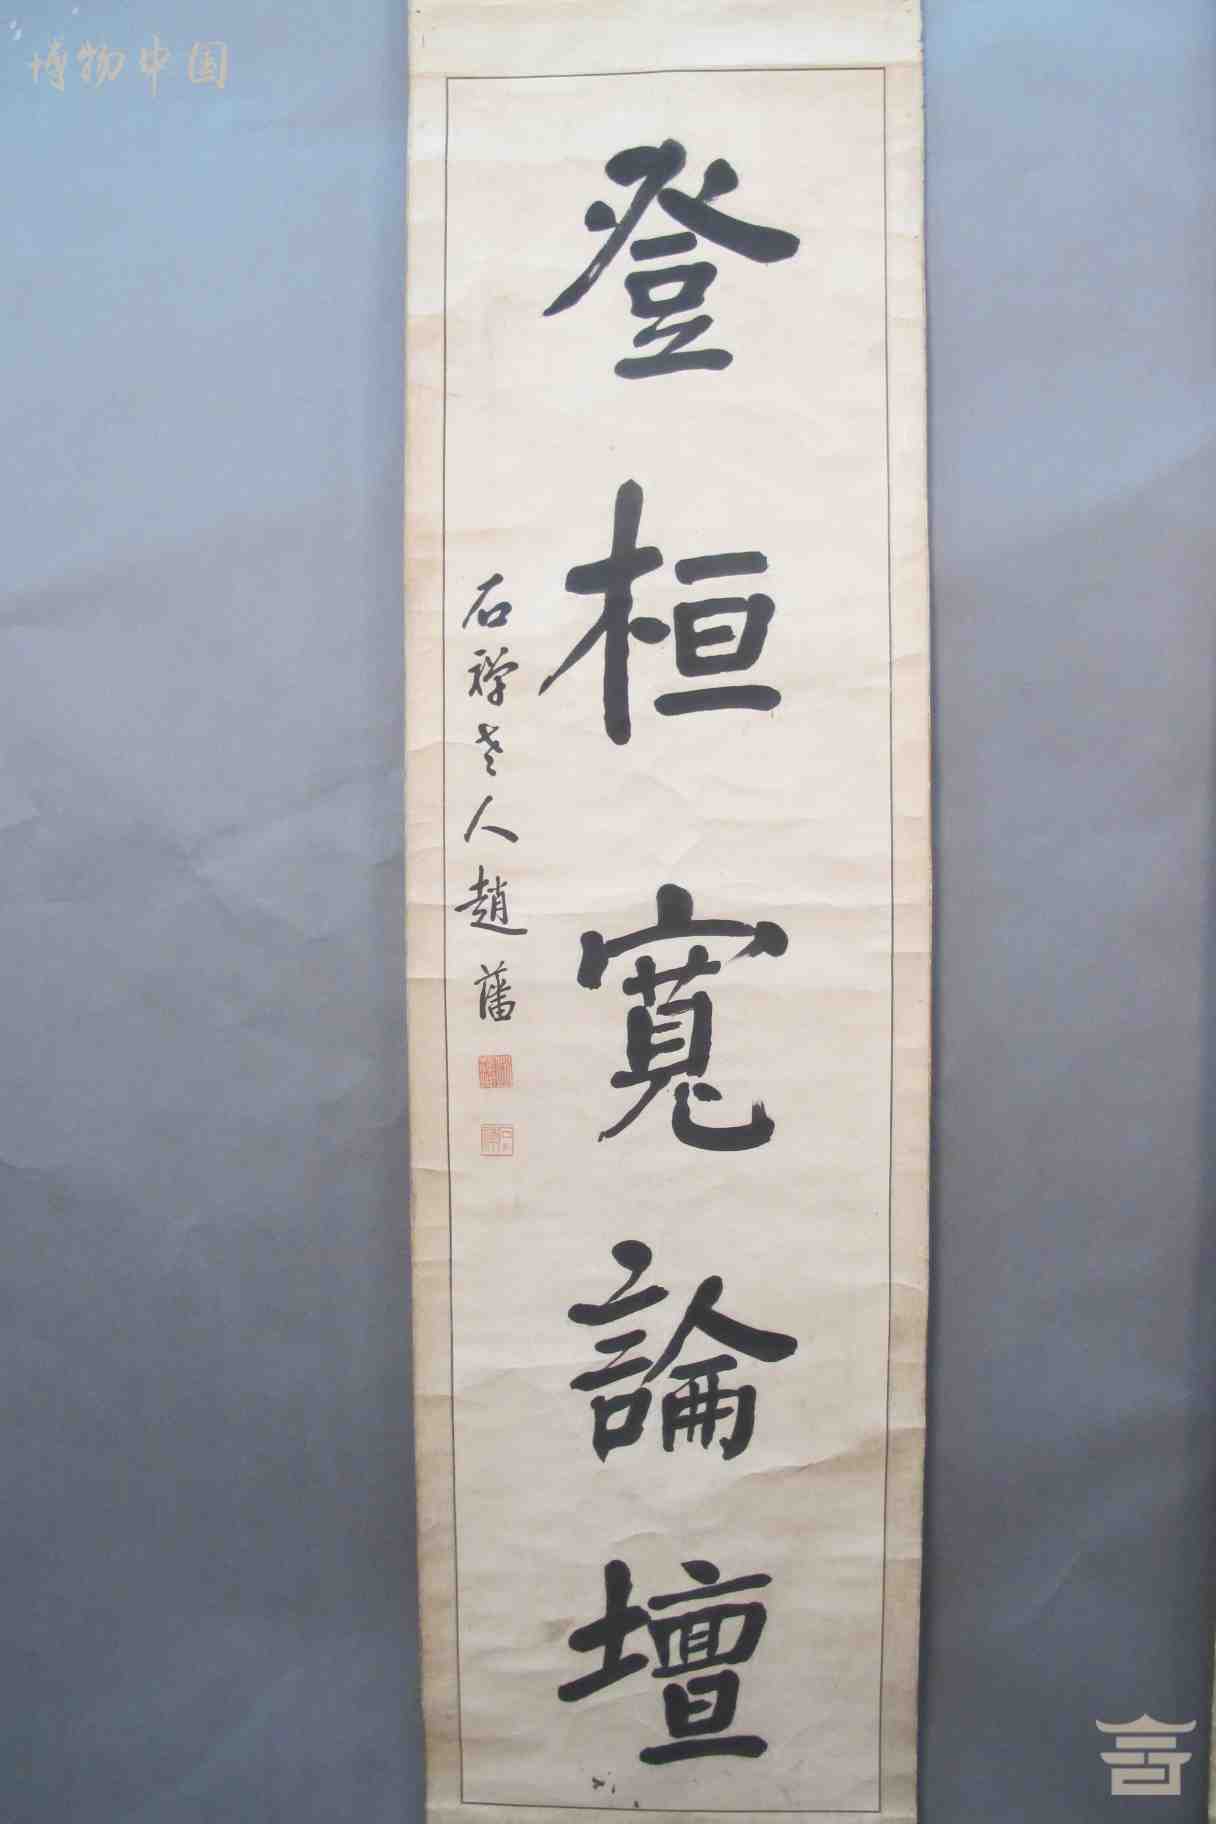 博物中国
登桓寬論壇
石禅老人趙藩